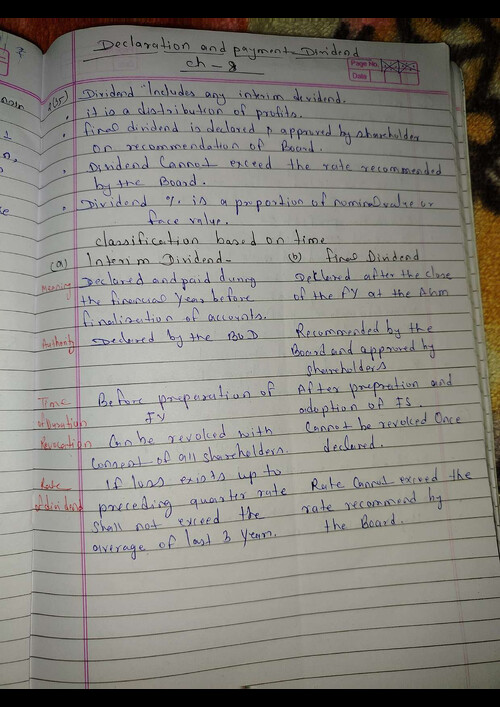 Declaration and payment Dividend
ch - 8
Page No.
Date
2(35) Dividend "Includes any interim dividend.
it is a distribution of profits.
final dividend is declared & approved by shareholder
on recommendation of Board.
Dividend Cannot exceed the rate recommended
by the Board.
Dividend % is a proportion of nominal value or
face value.
classification based on time
(a) Interim Dividend-
(b) final Dividend
meaning
Declared and paid during
the financial Year before
finalization of accounts.
Declared after the close
of the FY at the AGM
Authority
Declared by the BOD
Recommended by the
Board and approved by
shareholders
Time of Declaration
Before preparation of
FY
After prepration and
adoption of FS.
Revocation
Can be revolced with
consent of all shareholders.
Cannot be revolced Once
declared.
Rate
of dividend
If loss exists up to
preceding quarter rate
shall not exceed the
average of last 3 Years.
Rate Cannot exceed the
rate recommend by
the Board.